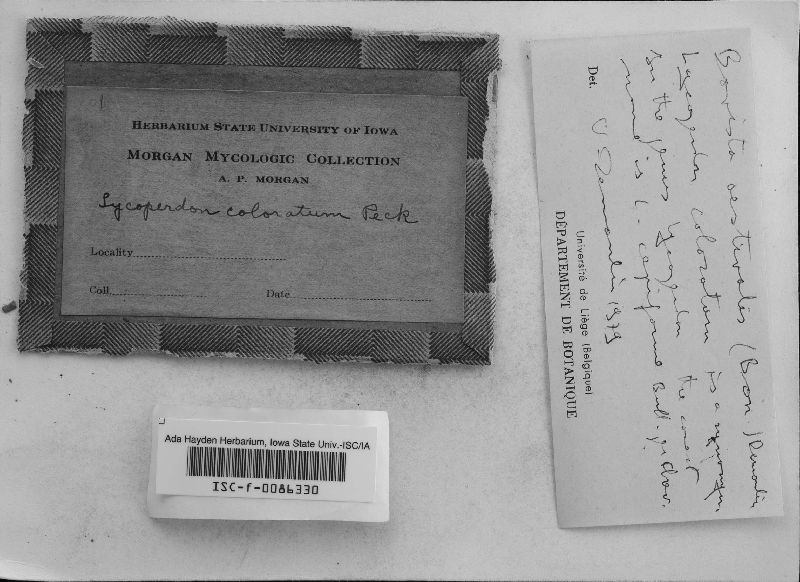 HERBARIUM STATE UNIVERSITY OF IOWA
MORGAN MYCOLOGIC COLLECTION
A. P. MORGAN
Lycoperdon coloratum Peck
Locality
Coll.
Date
Ada Hayden Herbarium, Iowa State Univ.-ISC/IA
ISC-f-0086330
Bovista aestivalis (Bon.) Demoulin
Lycoperdon coloratum is a synonym,
in the genus Lycoperdon the correct
name is L.
Det. V Demoulin 1979
Université de Liège (Belgique)
DÉPARTEMENT DE BOTANIQUE